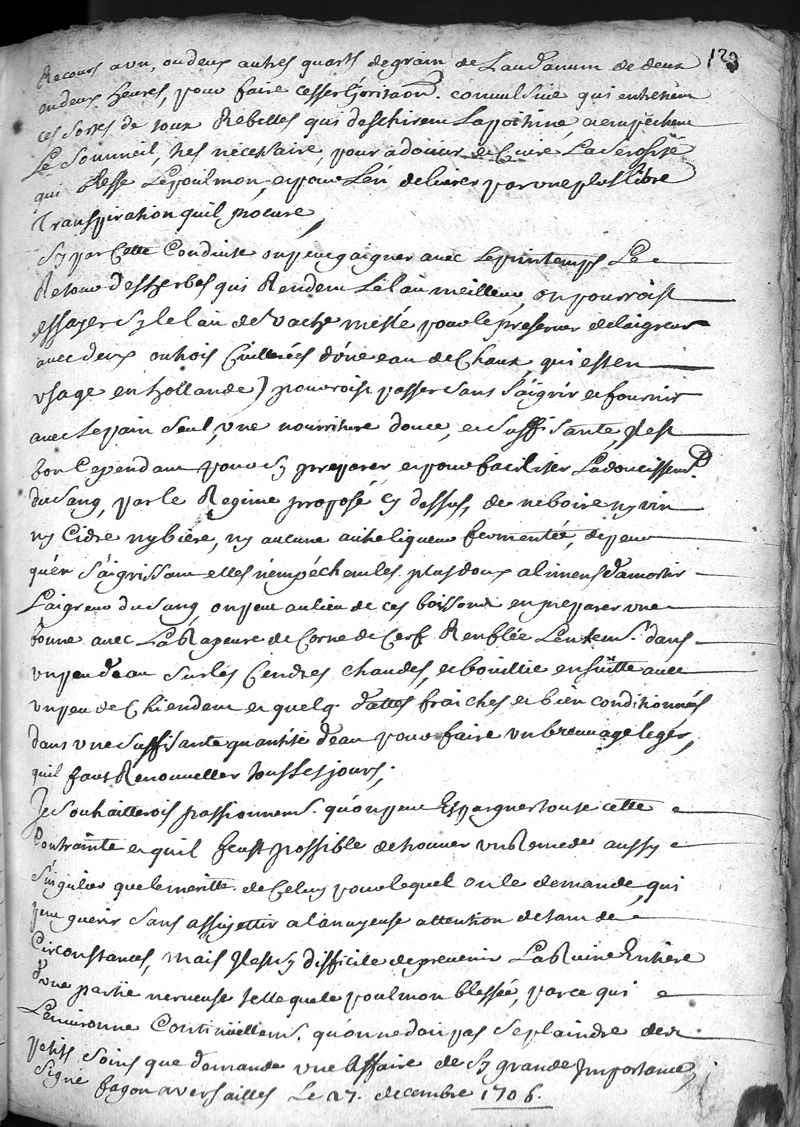 123
Recours a un, ou deux autres quarts de grain de Laudanum de deux
en deux heures, pour faire cesser L'jrritaon. convulsive qui entretient
ces sortes de toux Rebelles qui deschirent La poitrine, et empéchent
Le Sommeil, tres nécéssaire, pour adoucir et Cuire La Serosité
qui blesse Le poulmon, et pour L'en delivrer par une plus libre
Transpiration quil procure,
Sy par Cette Conduite on peut gaigner avec Le printemps Le
Retour des herbes qui Rendent Le lait meilleur, on pourroist
essayer Sy le lait de Vache meslé pour le préserver de laigreur
avec deux ou trois Cuillerées d'une eau de Chaux, qui est en
usage en hollande) pourroist passer Sans S'aigrir et fournir
avec Le pain Seul, une nourriture douce, et Suffisante, Jl est
bon Cependant pour s'y préparer, et pour faciliter Ladoucissemt.
du Sang, par le Régime proposé cy dessus, de ne boire ny vin
ny Cidre ny biere, ny aucune autre liqueur fermentée, de peur
qu'en S'aigrissant elles n'empéchent les plus doux alimens d'amortir
L'aigreur du Sang, on peut au lieu de ces boissons en préparer une
bonne avec La Rapeure de Corne de Cerf Renflée Lentemt. dans
un peu d'eau Sur les Cendres chaudes, et bouillie ensuitte avec
un peu de Chiendent et quelq. dattes fraiches et bien conditionnées
dans une Suffisante quantité d'eau pour faire un breuvage leger,
quil faut Renouveller tous les jours;
Je Souhaitterois passionnemt. qu'on peut Espargner toute cette
Contrainte et quil feust possible de trouver un Remede aussy
Singulier que le meritte de Celuy pour lequel on le demande, qui
peut guérir Sans assujettir a l'ennuyeuse attention de tant de
Circonstances, mais Jl est sy difficile de prevenir La Ruine Entiere
d'une partie nerveuse telle que le poulmon blessée, par ce qui
L'environne Continuellemt. qu'on ne doit pas Se plaindre des
petits Soins que demande une Affaire de Sy grande Jmportance
Signé fagon a versailles Le 27. decembre 1706.